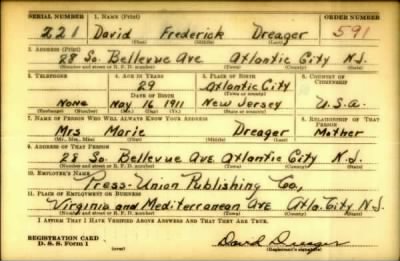 SERIAL NUMBER 1. NAME (Print) ORDER NUMBER
221 David Frederick Dreager 591
(First) (Middle) (Last)
2. ADDRESS (Print)
28 So. Bellevue Ave Atlantic City N.J.
(Number and street or R. F. D. number) (Town) (County) (State)
3. TELEPHONE 4. AGE IN YEARS 5. PLACE OF BIRTH 6. COUNTRY OF CITIZENSHIP
29 Atlantic City
DATE OF BIRTH (Town or county)
None May 16 1911 New Jersey U.S.A.
(Exchange) (No.) (Mo.) (Day) (Yr.) (State or country)
7. NAME OF PERSON WHO WILL ALWAYS KNOW YOUR ADDRESS 8. RELATIONSHIP OF THAT PERSON
Mrs Marie Dreager Mother
(Mr., Mrs., Miss) (First) (Middle) (Last)
9. ADDRESS OF THAT PERSON
28 So. Bellevue Ave Atlantic City N.J.
(Number and street or R. F. D. number) (Town) (County) (State)
10. EMPLOYER'S NAME
Press-Union Publishing Co,
11. PLACE OF EMPLOYMENT OR BUSINESS
Virginia and Mediterranean Ave Atla. City N.J.
(Number and street or R. F. D. number) (Town) (County) (State)
I AFFIRM THAT I HAVE VERIFIED ABOVE ANSWERS AND THAT THEY ARE TRUE.
REGISTRATION CARD
D. S. S. Form 1 David Dreager
(Registrant's signature)